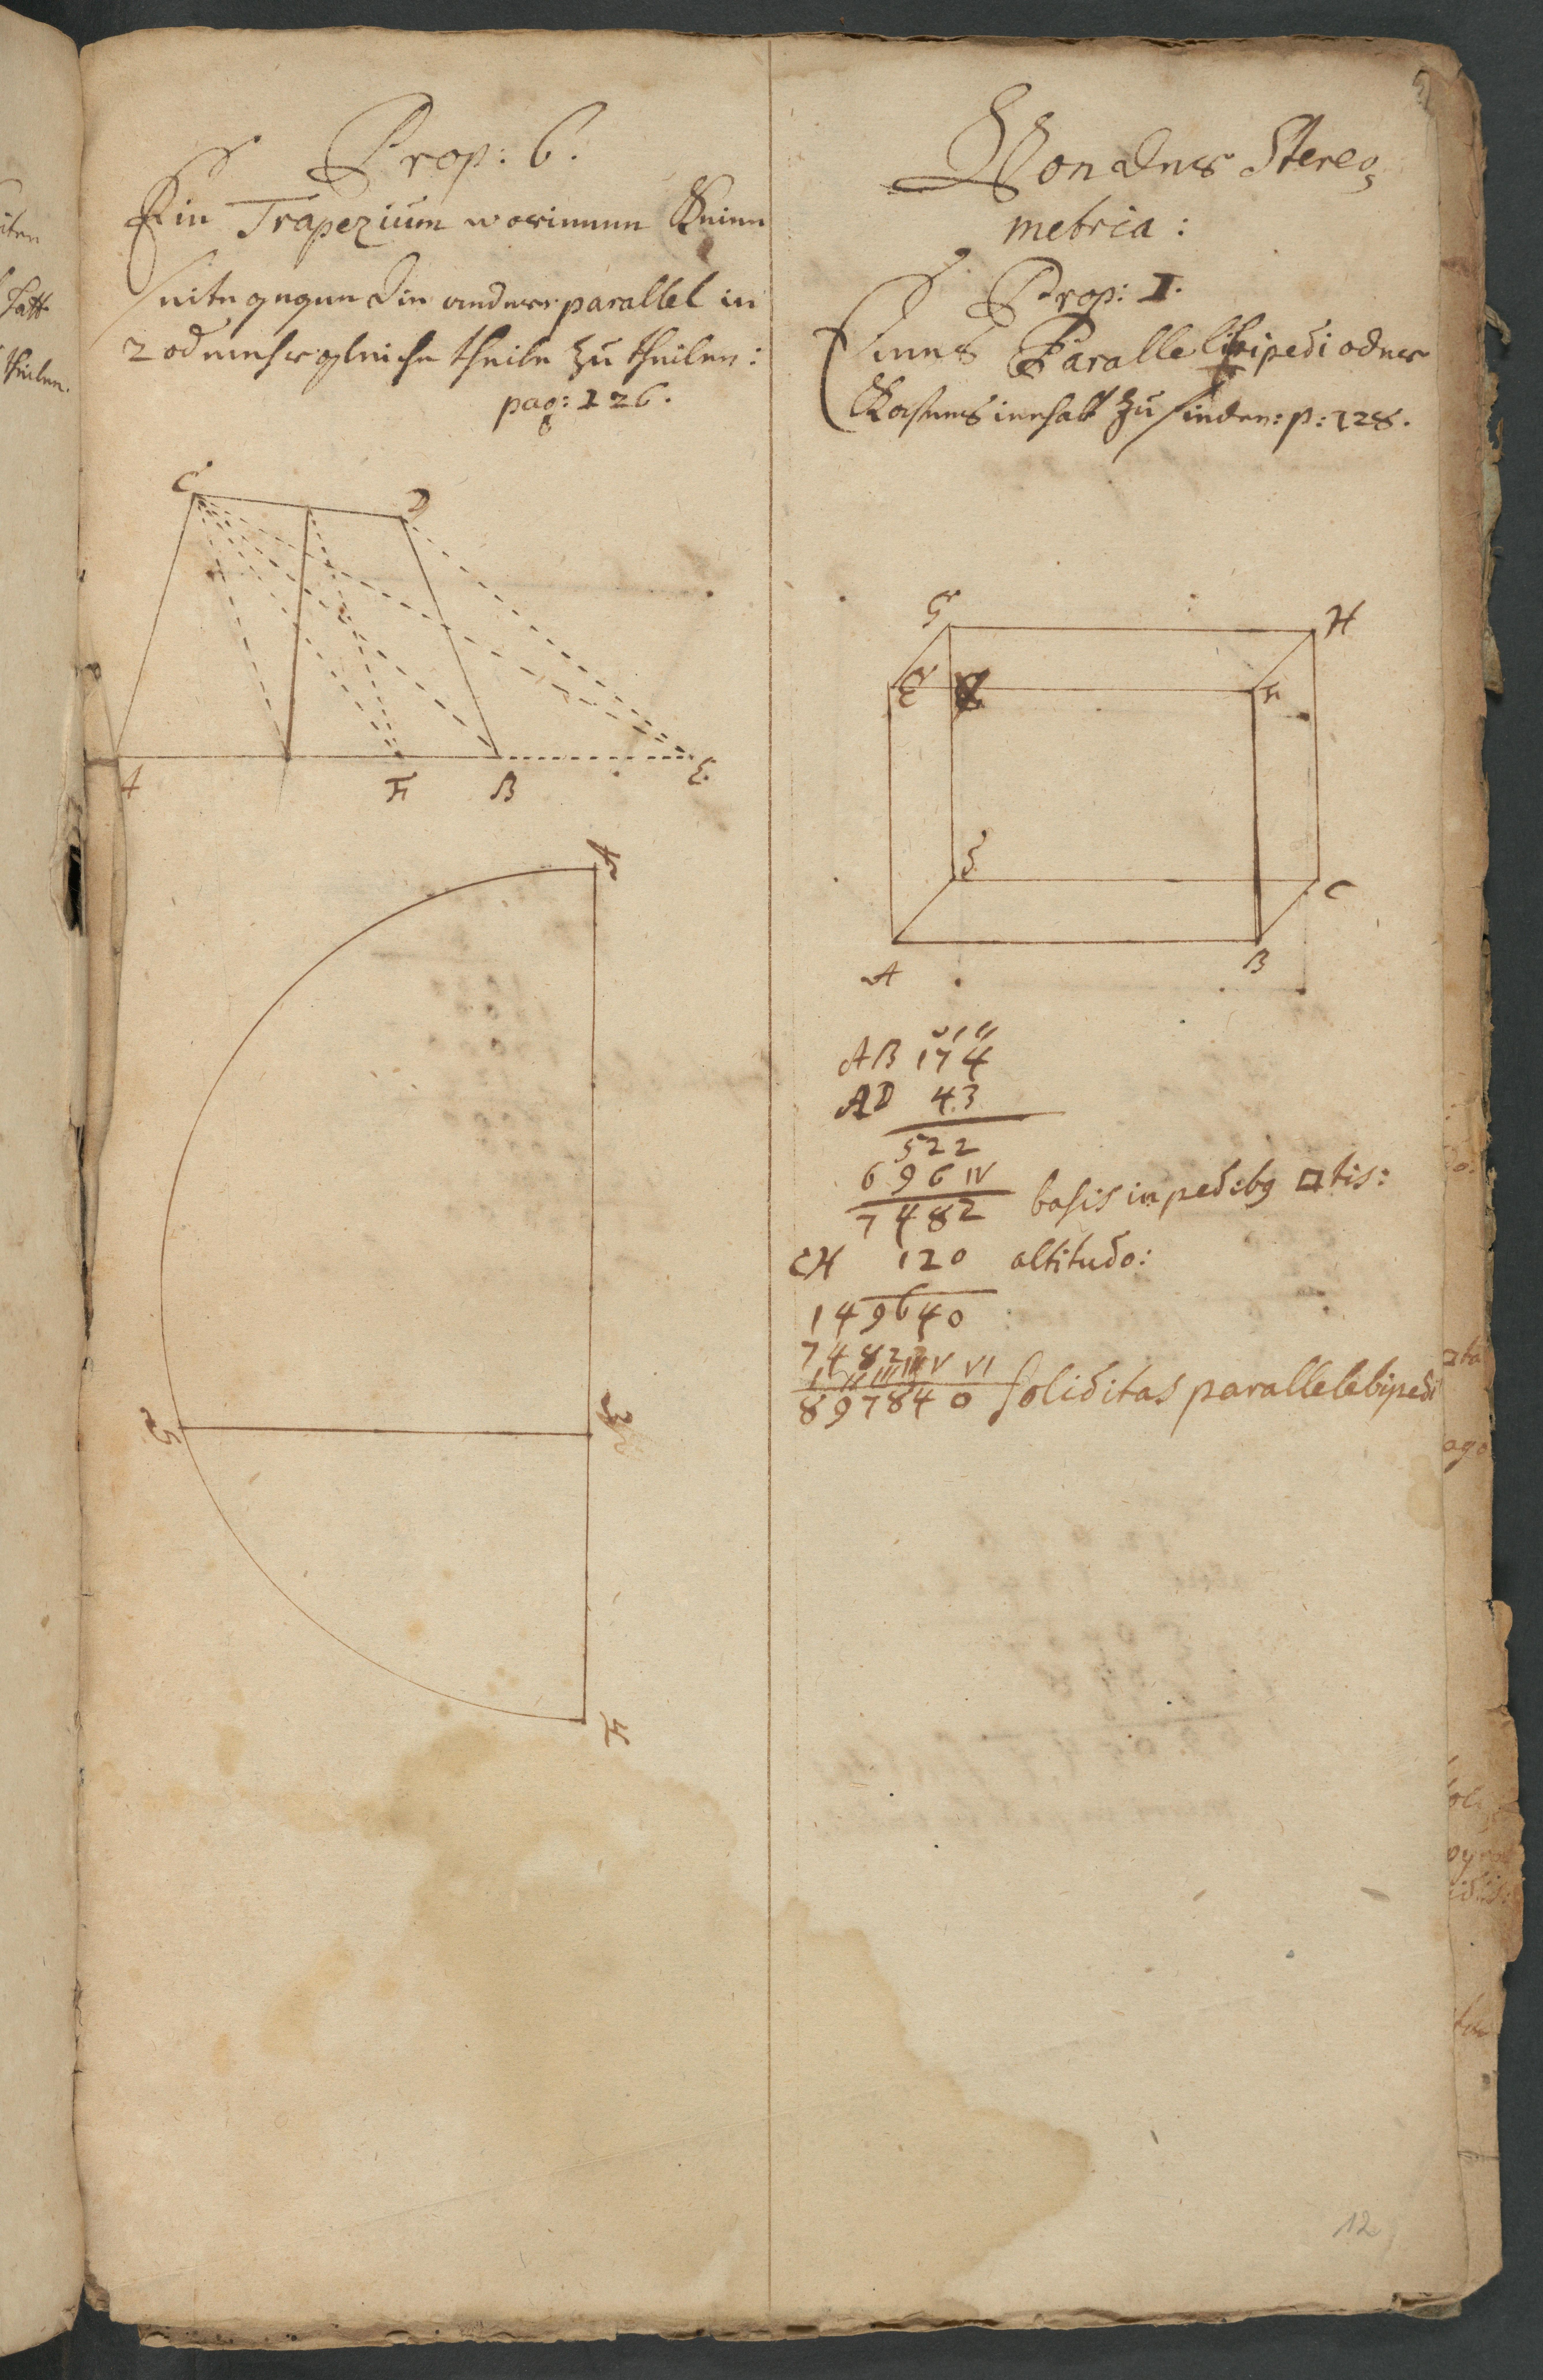 Prop: 6.
Ein Trapezium worinnen Keine
seite gegen die ander parallel in
2 od mehr gleiche theile zu theilen:
pag: 126.
C
D
A
F
B
E
Von der Stereo
metria:
Prop: 1.
Eines Parallelipipedi oder
Kastens innhalt zu finden: p: 128.
G
H
E
F
C
A
B
AB 174
AD 43
522
696 IV
7482 basis in pedibq □tis:
CH 120 altitudo:
149640
7482
I II III IV V VI
897840 soliditas parallelebipedi
12